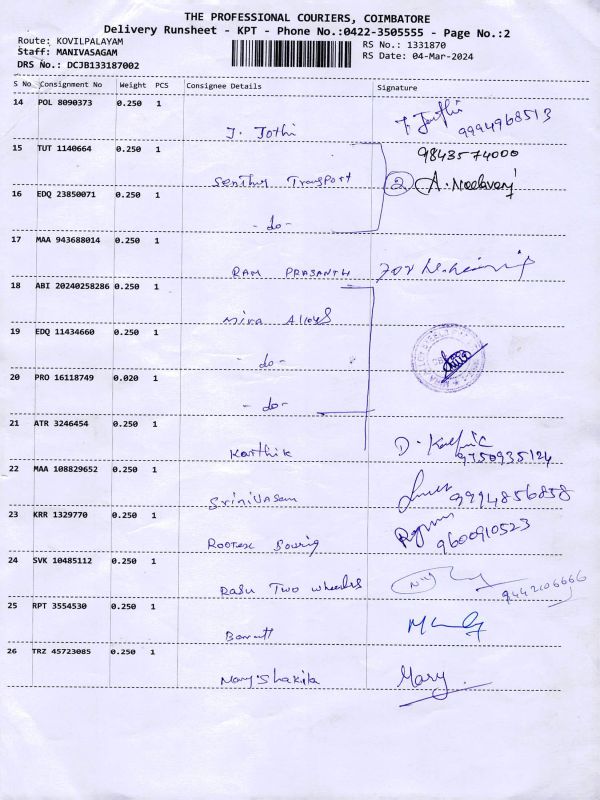 THE PROFESSIONAL COURIERS, COIMBATORE
Delivery Runsheet - KPT - Phone No.:0422-3505555 - Page No.:2
Route: KOVILPALAYAM
Staff: MANIVASAGAM
DRS No.: DCJB133187002
RS No.: 1331870
RS Date: 04-Mar-2024
S No Consignment No Weight PCS Consignee Details Signature
14 POL 8090373 0.250 1
J. Jothi J Jothi 9994968513
15 TUT 1140664 0.250 1 9843574000
Senthur Transport 2
16 EDQ 23850071 0.250 1
- do -
17 MAA 943688014 0.250 1
RAM PRASANTH for
18 ABI 20240258286 0.250 1
Mira Alloys
19 EDQ 11434660 0.250 1
- do -
20 PRO 16118749 0.020 1
- do -
21 ATR 3246454 0.250 1
Karthik D. 9750935124
22 MAA 108829652 0.250 1
Srinivasan 9994856858
23 KRR 1329770 0.250 1
9600910523
24 SVK 10485112 0.250 1
Two Wheelers 9442106666
25 RPT 3554530 0.250 1
26 TRZ 45723085 0.250 1
Mary Shakila Mary